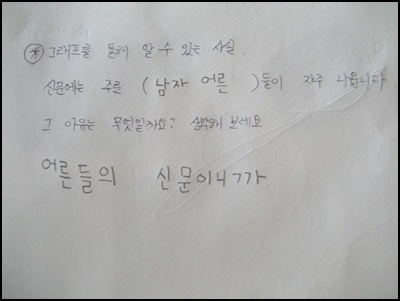 * 그래프를 통해 알 수 있는 사실.
신문에는 주로 (남자 어른)들이 자주 나옵니다
그 이유는 무엇일까요? 생각해 보세요
어른들의 신문이니ㄱ가.